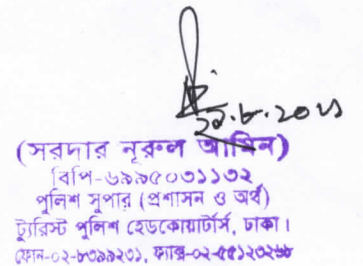 (সরদার নূরুল আমিন)
বিপি-৬৯৯৫০৩১১৩২
পুলিশ সুপার (প্রশাসন ও অর্থ)
ট্যুরিস্ট পুলিশ হেডকোয়ার্টার্স, ঢাকা।
ফোন-০২-৮৩৯৯২৩১, ফ্যাক্স-০২-৫৫১২৩২